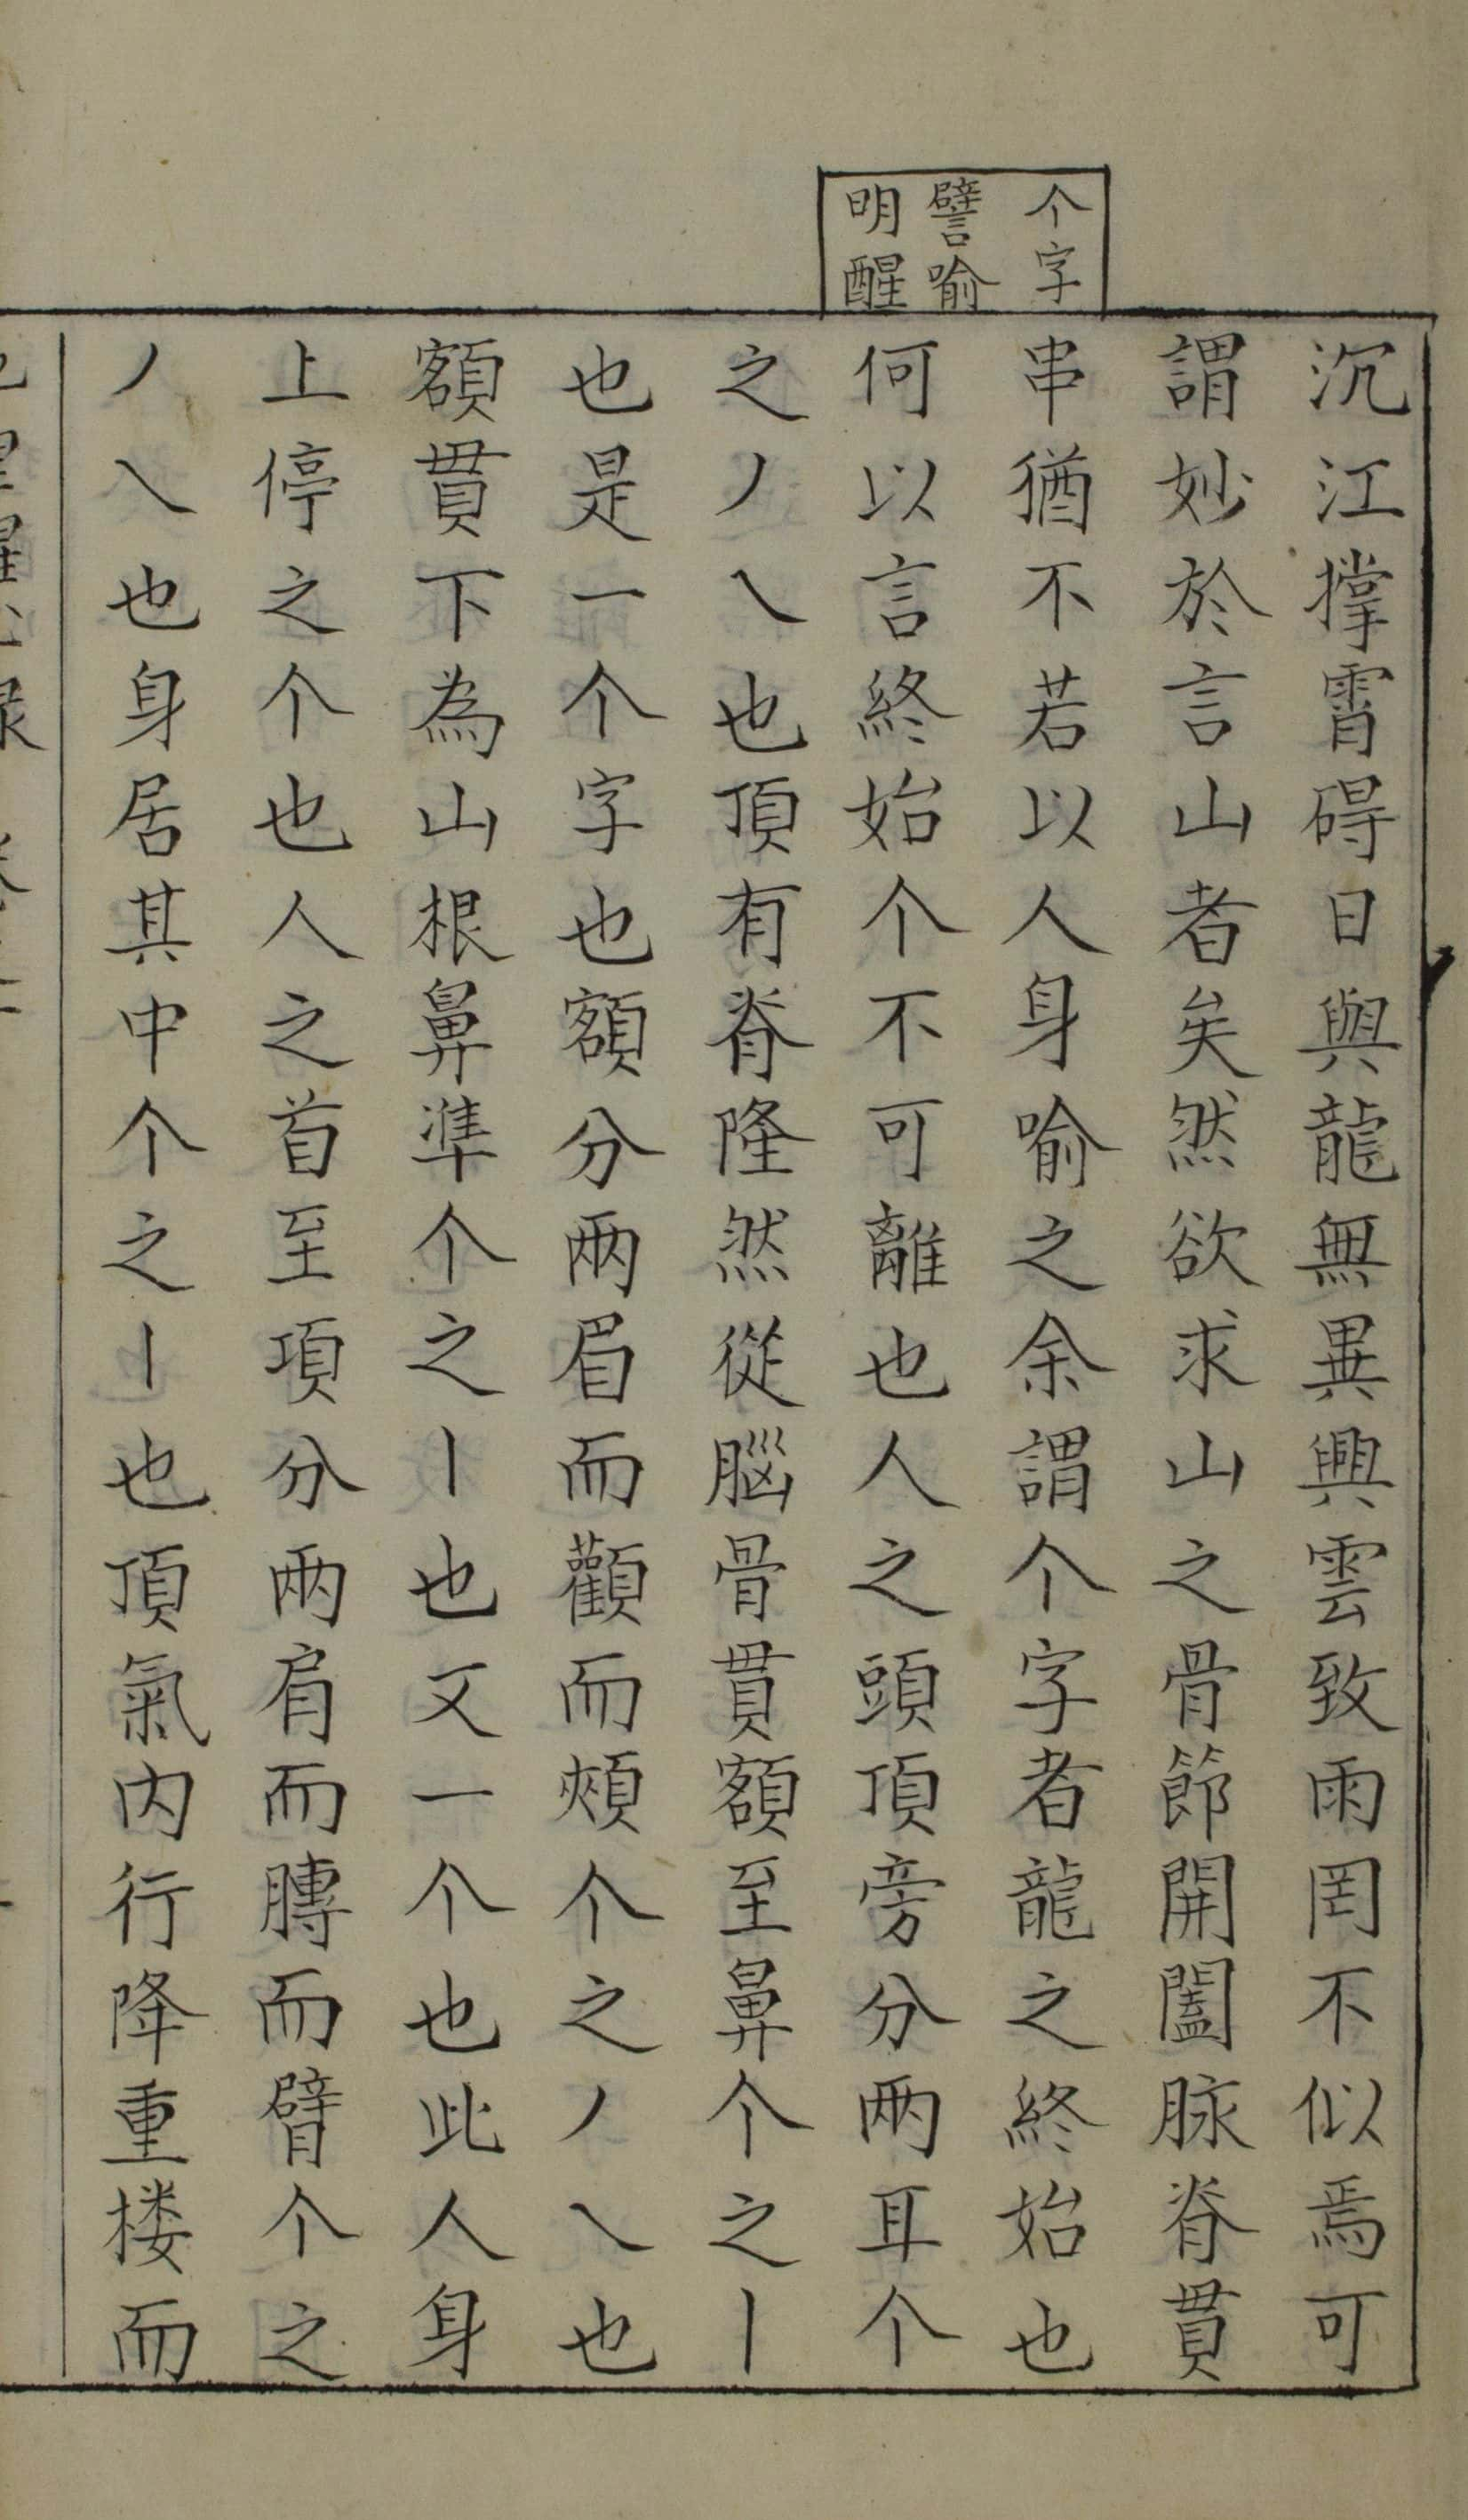 个字
譬喻
明醒
沉江撑霄碍日與龍無異興雲致雨罔不似焉可
謂妙於言山者矣然欲求山之骨節開闔脉脊貫
串猶不若以人身喻之余謂个字者龍之終始也
何以言終始个不可離也人之頭頂旁分兩耳个
之丿乀也頂有脊隆然從腦骨貫額至鼻个之丨
也是一个字也額分兩眉而顴而頰个之丿乀也
額貫下為山根鼻準个之丨也又一个也此人身
上停之个也人之首至項分兩肩而膊而臂个之
丿乀也身居其中个之丨也頂氣内行降重楼而